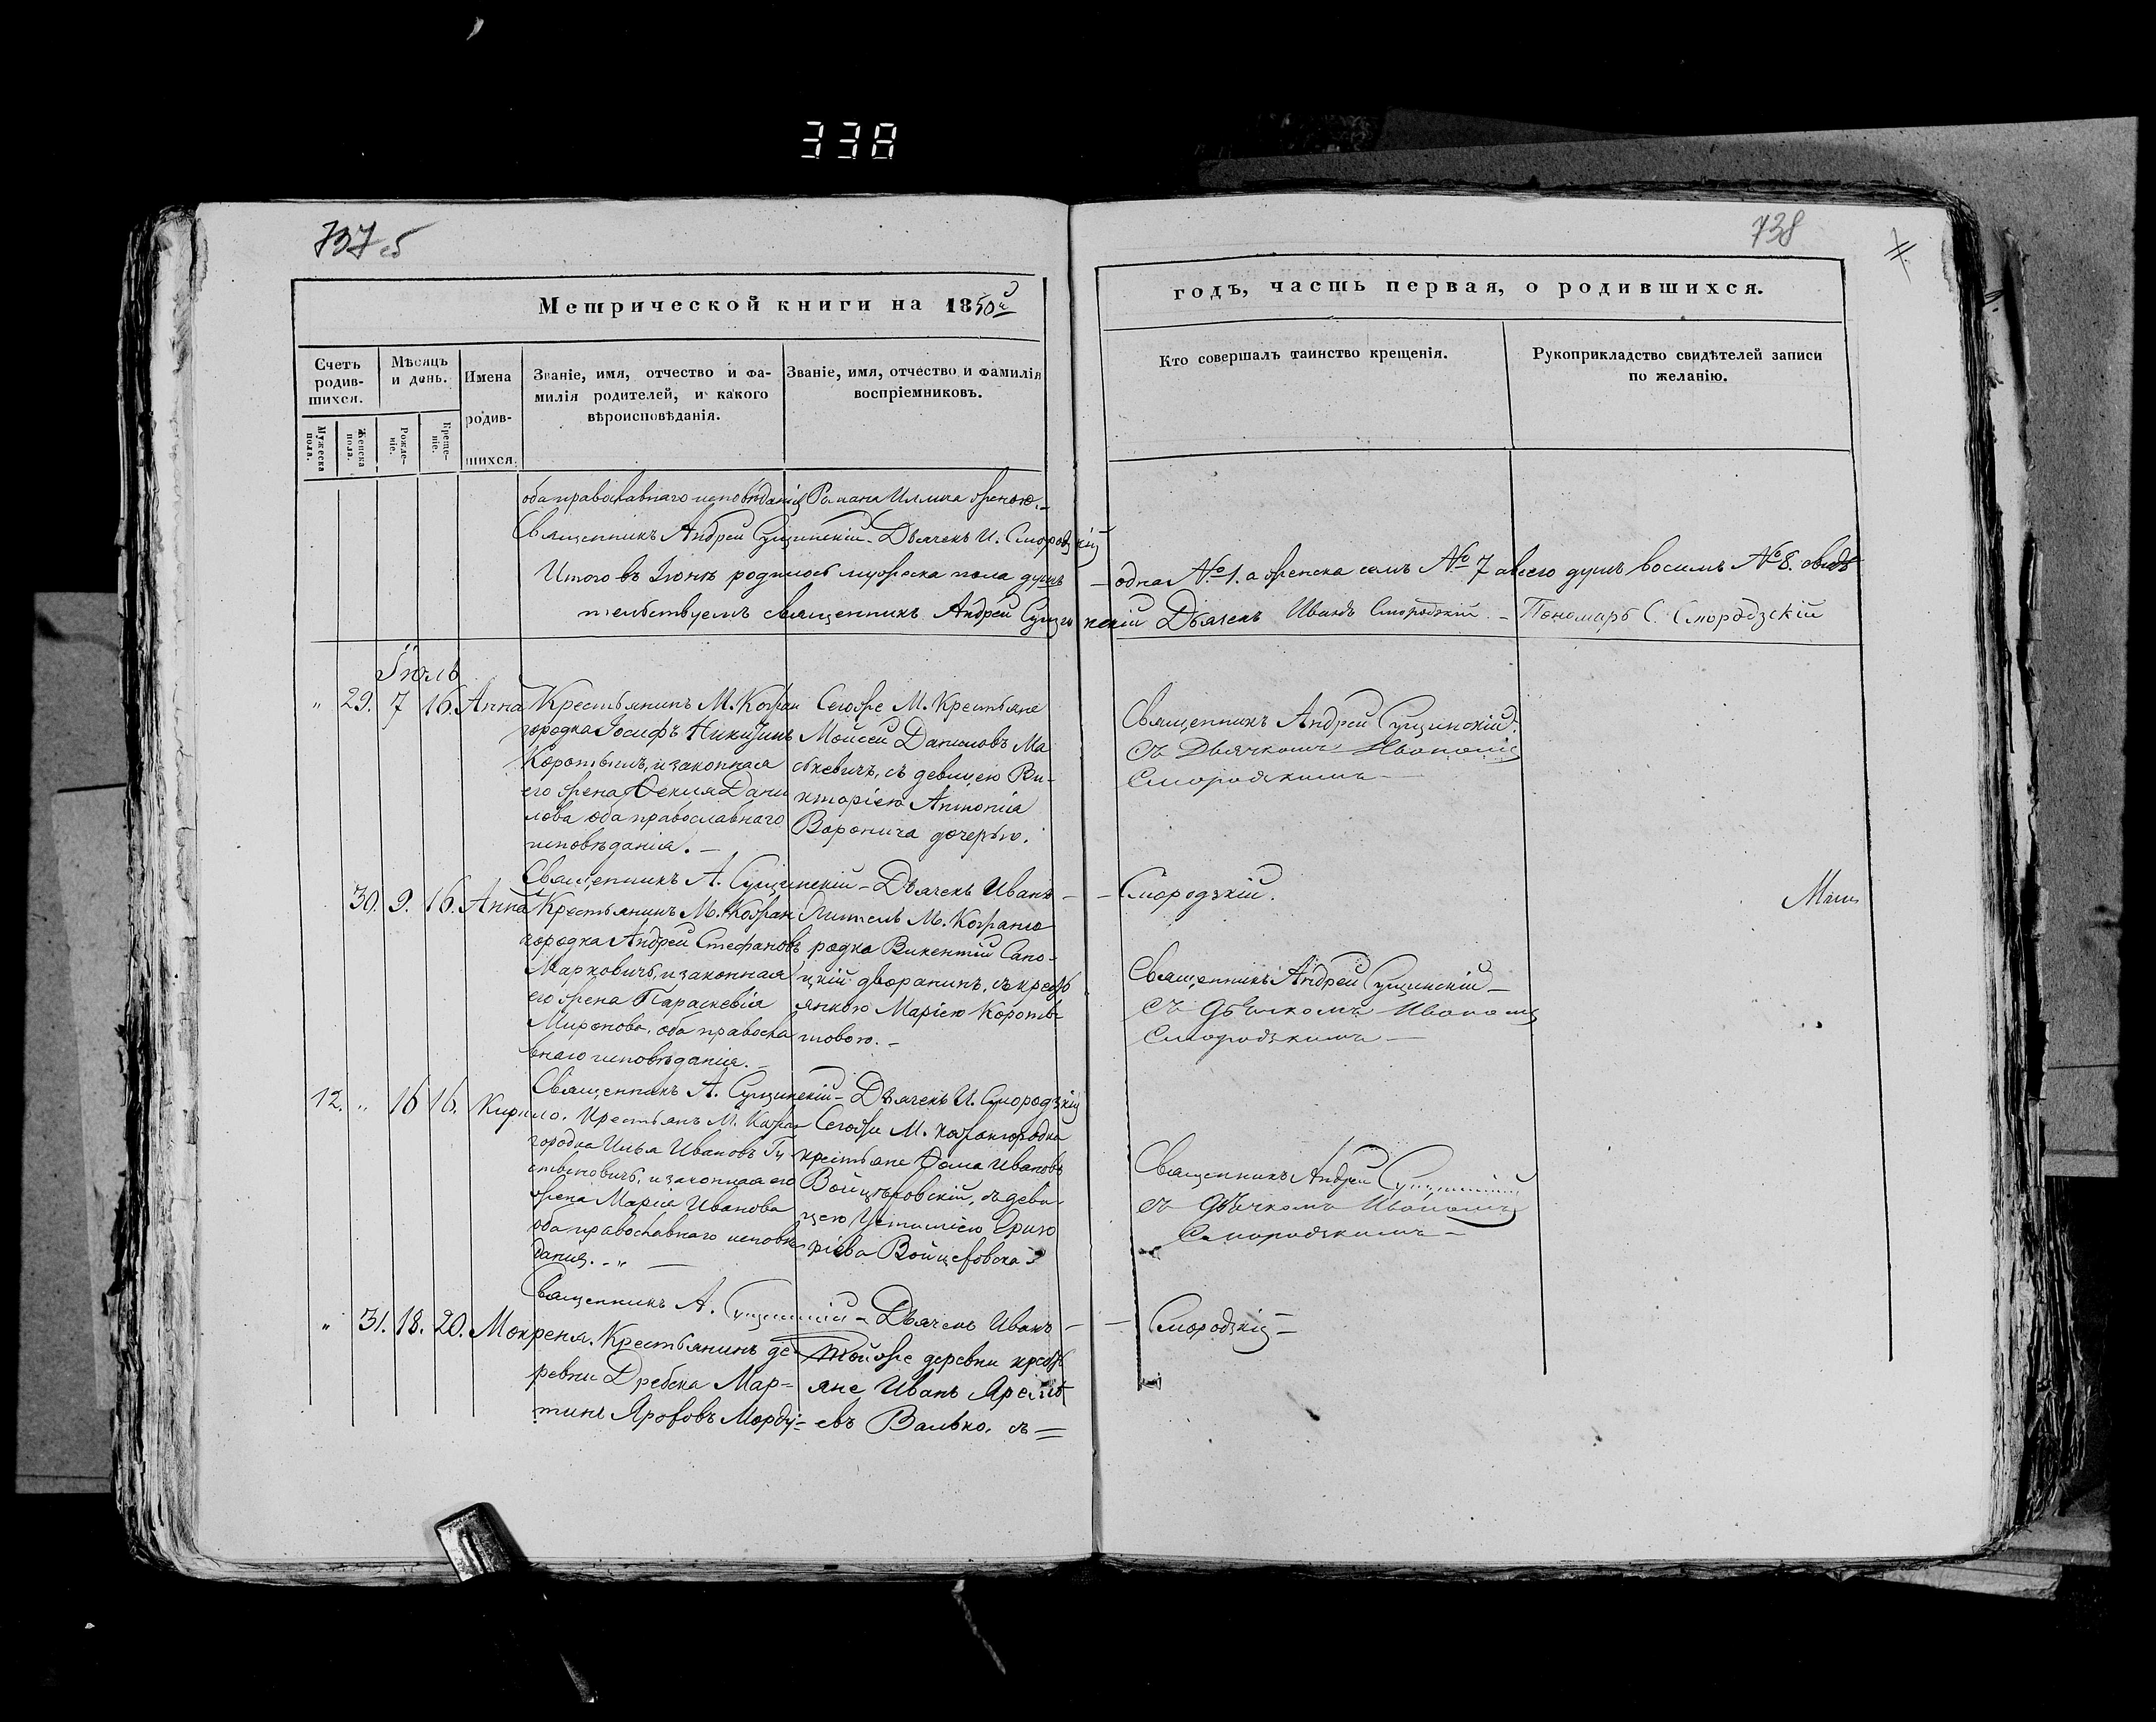 338
737 об
738
Метрической книги на 1850й
годъ, часть первая, о родившихся.
Счетъ родив-шихся.
Мужеска пола.
Женска пола.
Мѣсяцъ и день.
Рожде-ніе.
Креще-ніе.
Имена родив-шихся.
Званіе, имя, отчество и фа-
милія родителей, и какого
вѣроисповѣданія.
Званіе, имя, отчество и фамилія
воспріемниковъ.
Кто совершалъ таинство крещенія.
Рукоприкладство свидѣтелей записи
по желанію.
оба православнаго исповѣданія Романа Ильича женою.
Священникъ Андрей Сущинскій - Дьячекъ И. Смородзкій
Итого въ Іюнѣ родилось мужеска пола душъ – одна №1. а женска семь №7 а всего душъ восемь №8. свидѣ
тельствуемъ священникъ Андрей Сущинскій Дьячекъ Иванъ Смородзкій – Пономарь С. Смородзскій
Іюль
" 29. 7 16. Анна
Крестьянинъ М. Кожан
городка Іосифъ Никитинъ
Коротышъ, и законная
его жена Фекля Дани
лова оба православнаго
исповѣданія. –
Сегоже М. Крестьяне
Мойсей Даниловъ Ма
скевичъ, съ девицею Ви-
кторіею Антонія
Воронича дочерью.
Священникъ Андрей Сущинскій
съ Дьячкомъ Иваномъ
Смородзкимъ –
Священникъ А. Сущинскій – Дьячекъ Иванъ – – Смородзкій.
30. 9. 16. Анна
Крестьянинъ М. Кожан
городка Андрей Стефановъ
Марковичъ, и законная
его жена Параскевія
Миронова, оба правосла
внаго исповѣданія. –
М. Кожанго
родка Викентій Сапо-
цкій дворанинъ, съ крест
янкою Маріею Короты
шовою. –
Священникъ Андрей Сущинскій –
съ Дьячкомъ Иваномъ
Смородзкимъ –
Священникъ А. Сущинскій – Дьячекъ И. Смородзкій
12. " 16 16. Кирило.
Крестьянъ М. Кожан
городка Илья Ивановъ
и законная его
жена Марія Иванова
оба православнаго исповѣ
данія. – " –
Сегожи М. Кожангородка
крестьяне Фома Ивановъ
съ деви
цею Устиніею Григо
рієва
Священникъ Андрей Сущинскій
съ Дьячкомъ Иваномъ
Смородзкимъ –
Священникъ А. Сущинскій – Дьячекъ Иванъ – – Смородзкій –
" 31. 18. 20. Мокреня.
Крестьянинъ де-
ревни Дребска Мар-
тинъ
Тойже деревни крест
яне Иванъ Яремѣ
евъ Валько, съ =